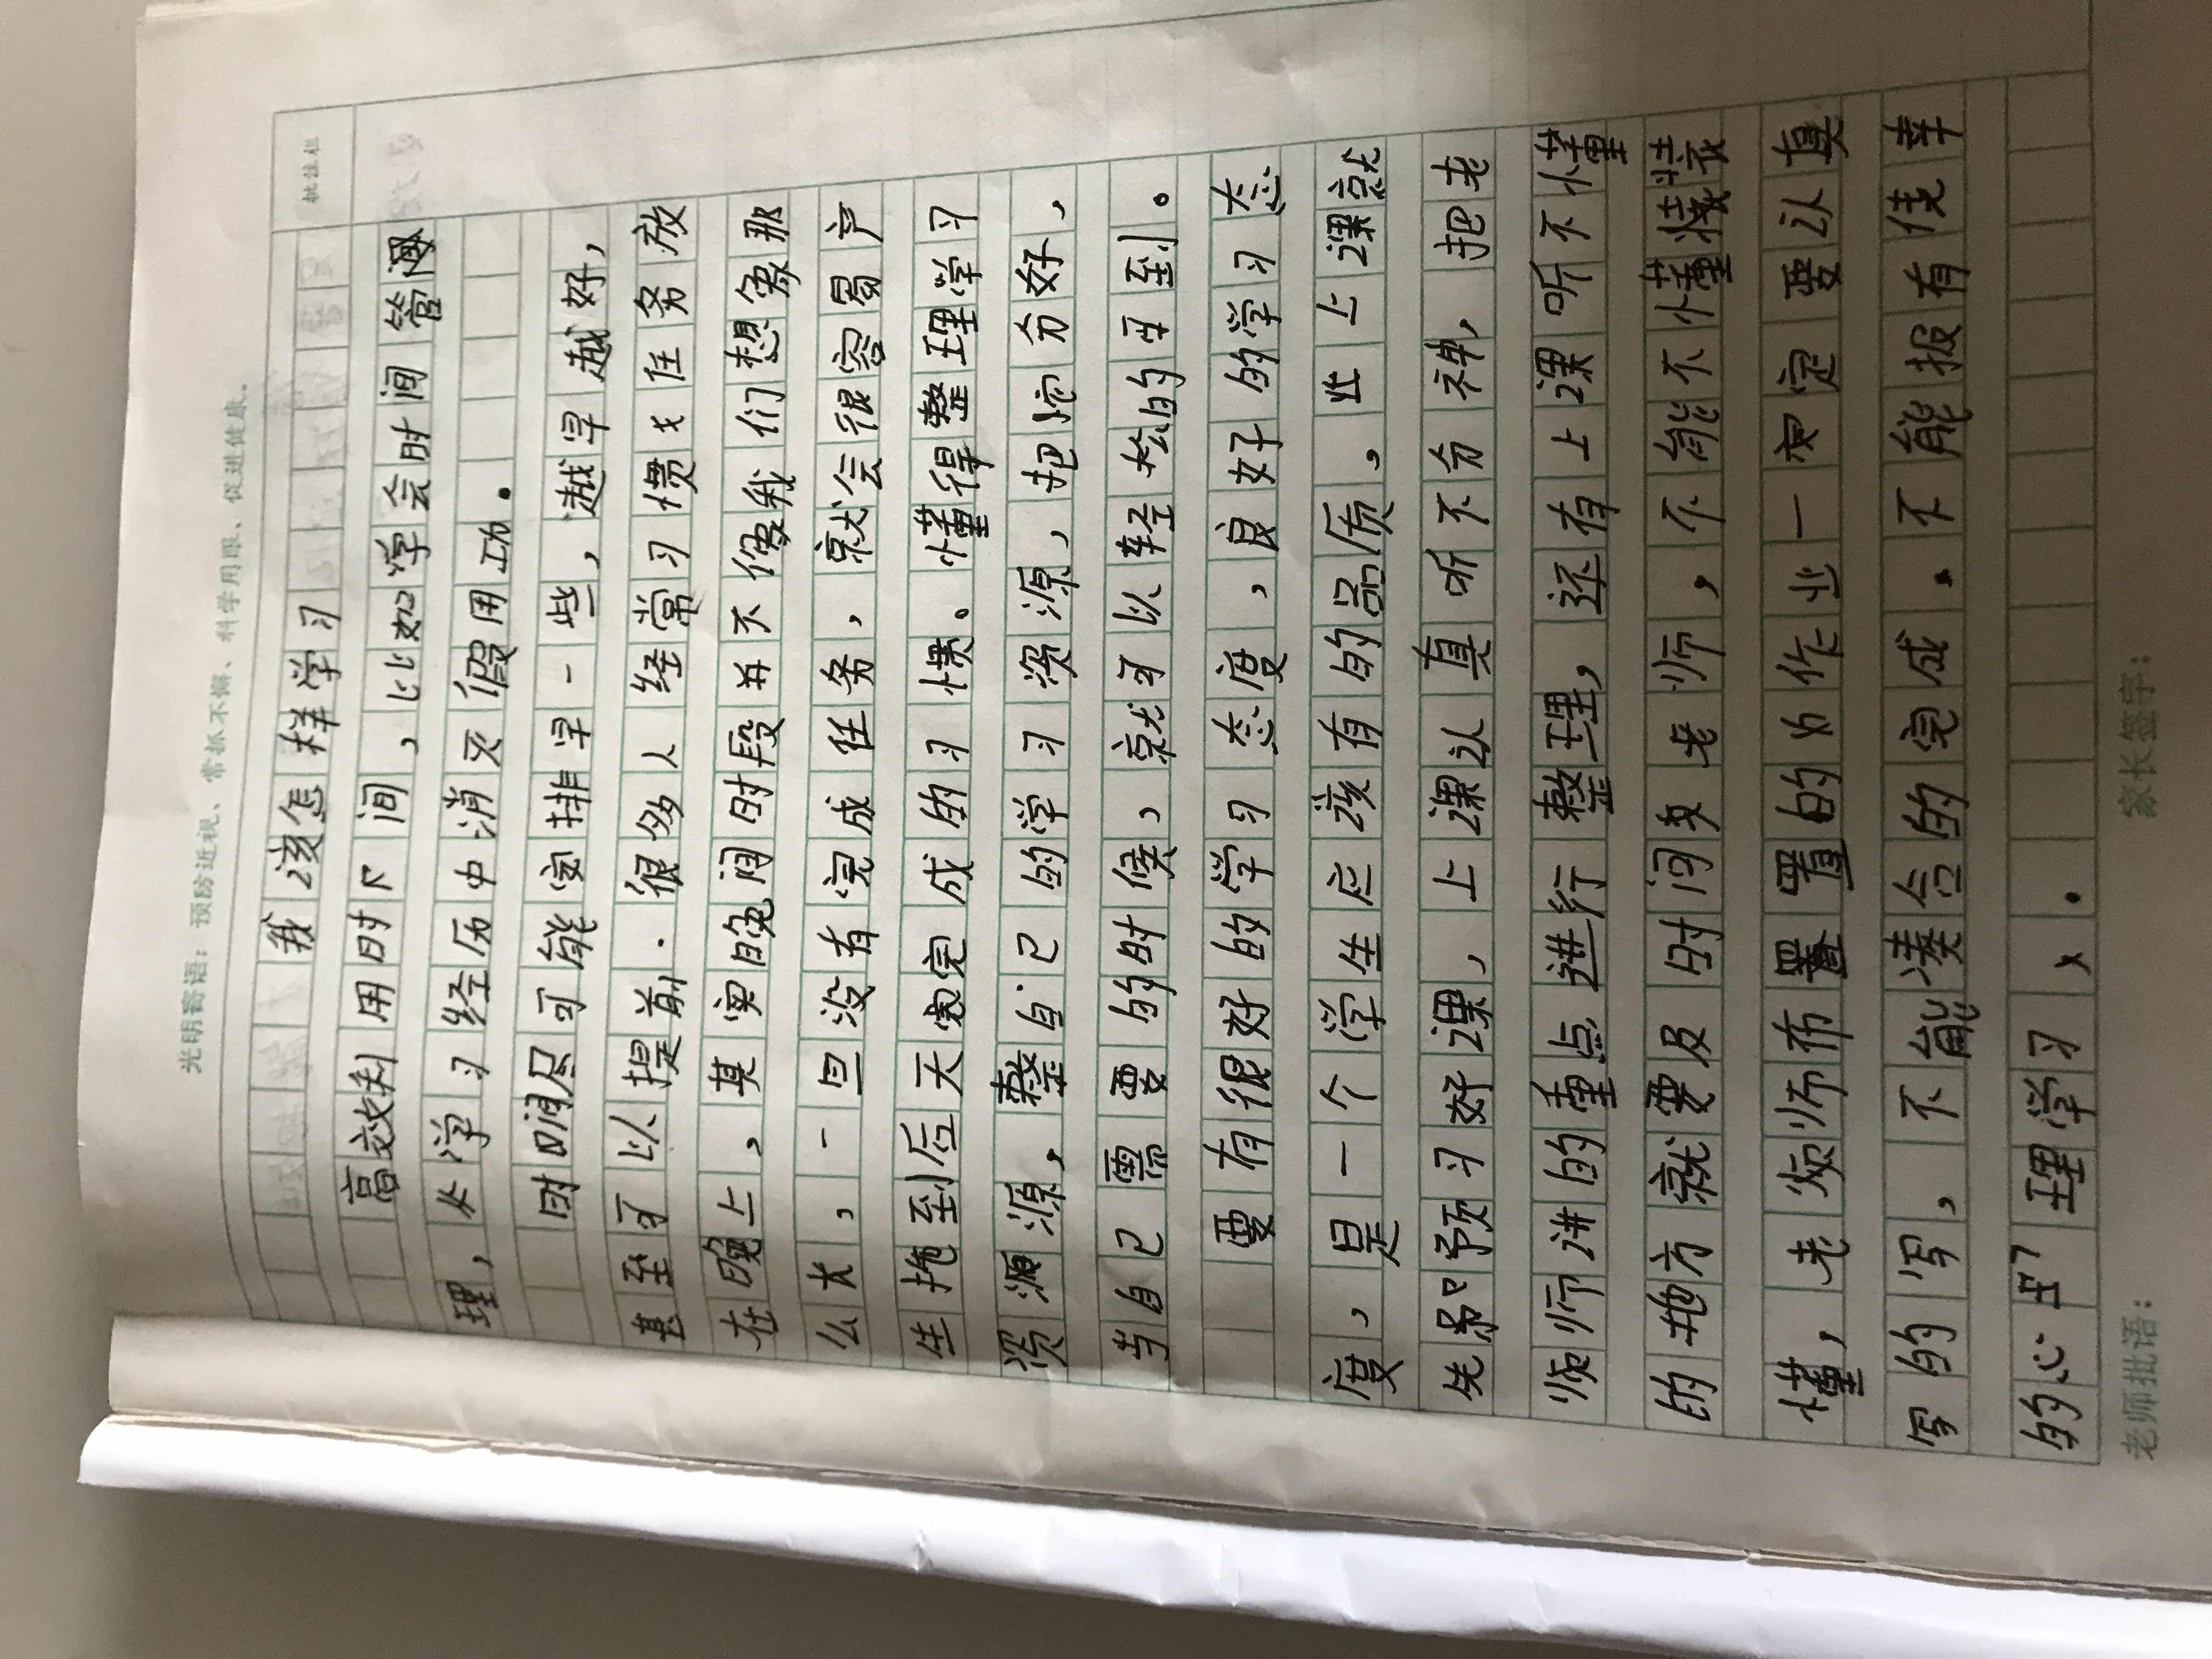 光明寄语：预防近视、常抓不懈、科学用眼、促进健康。
批注栏
我该怎样学习
高效利用时间，比如学会时间管
理，从学习经历中消灭假用功。
时间尽可能安排早一些，越早越好，
甚至可以提前.很多人经常习惯把任务放
在晚上，其实晚间时段并不像我们想象那
么长，一旦没有完成任务，就会很容易产
生拖到后天完成的习惯。懂得整理学习
资源，整自己的学习资源，把它分好，
当自己需要的时候，就可以轻松的找到。
要有很好的学习态度，良好的学习态
度，是一个学生应该有的品质。比上课就
先预习好课，上课认真听不分神，把老
师讲的重点进行整理，还有上课听不懂
的地方就要及时问老师，不能不懂装
懂，老师布置的作业一定要认真
写的写，不能凑合的完成。不能报有侥幸
的心理学习。
老师批语：
家长签字：